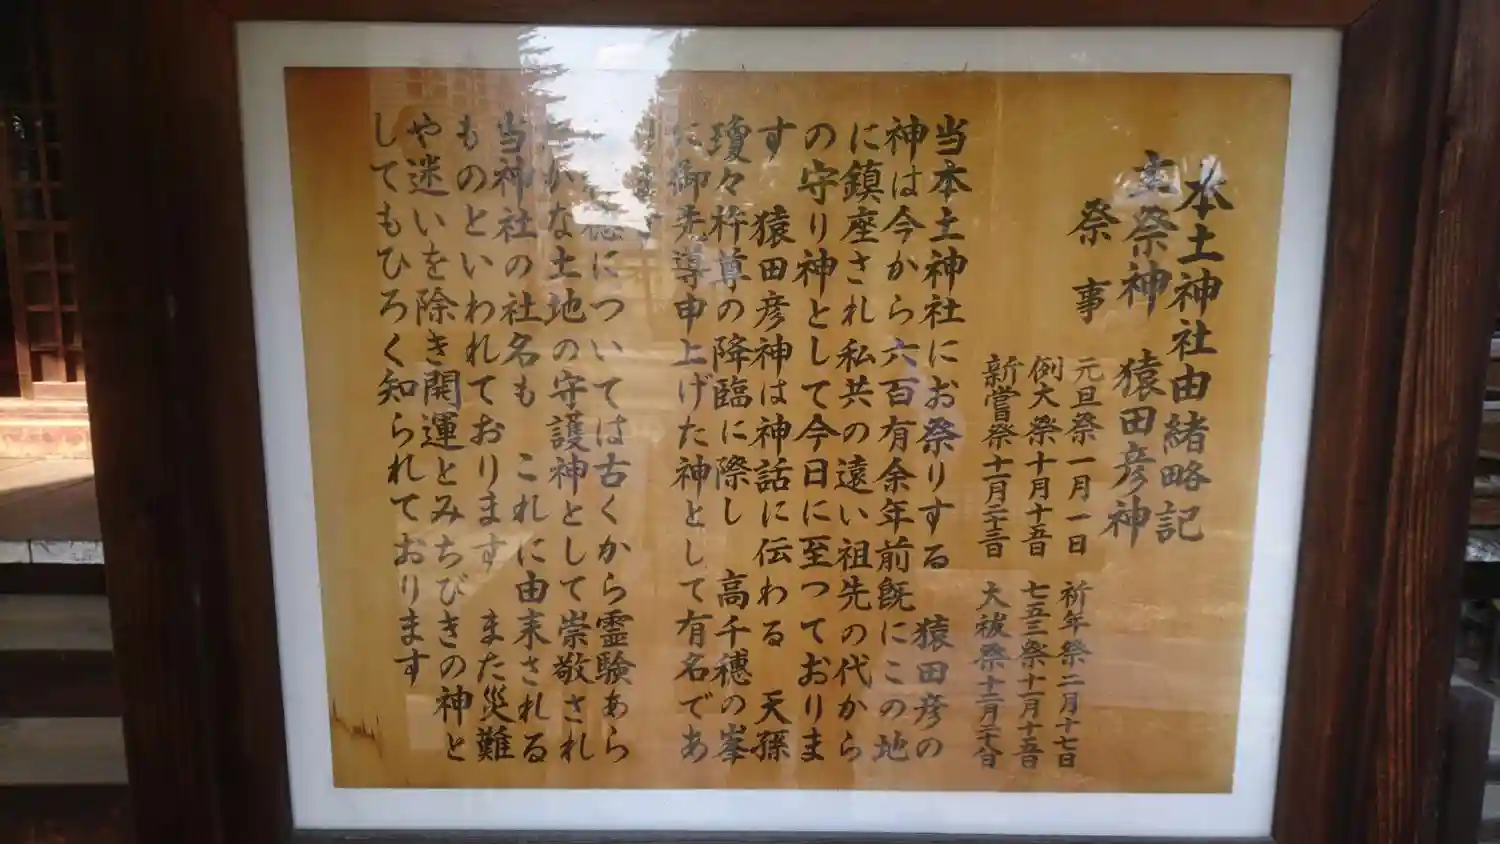 本土神社由緒略記
主祭神 猿田彦神
祭事
元旦祭 一月一日 祈年祭 二月十七日
例大祭 十月十五日 七五三祭 十一月十五日
新嘗祭 十一月二十三日 大祓祭
当本土神社にお祭りする 猿田彦の
神は今から六百有余年前既にこの地
に鎮座され私共の遠い祖先の代から
の守り神として今日に至つておりま
す 猿田彦神は神話に伝わる 天孫
瓊々杵尊の降臨に際し 高千穂の峯
に御先導申上げた神として有名であ
徳については古くから霊験あら
かな土地の守護神として崇敬され
当神社の社名も これに由来される
ものといわれております また災難
や迷いを除き開運とみちびきの神と
してもひろく知られております